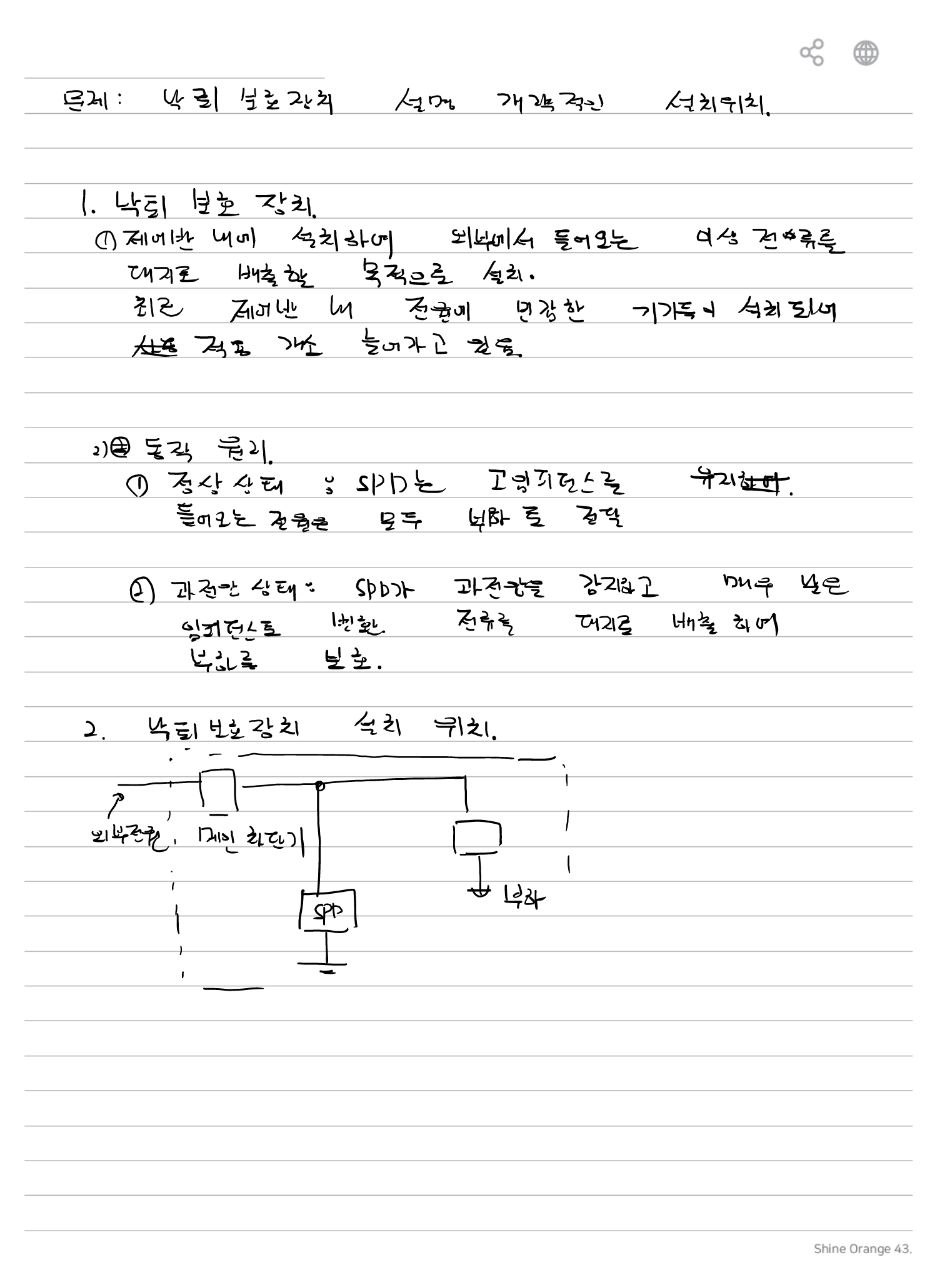 문제: 낙뢰 보호장치 설명 개략적인 설치위치.
1. 낙뢰 보호 장치.
① 제어반 내에 설치하여 외부에서 들어오는 이상 전류를
대지로 배출할 목적으로 설치.
최근 제어반 내 전원에 민감한 기기들이 설치되어
적용 개소 늘어가고 있음.
2) 동작 원리.
① 정상 상태 : SPD는 고임피던스를 유지
들어오는 전원은 모두 부하로 전달
② 과전압 상태: SPD가 과전압을 감지하고 매우 낮은
임피던스로 변환. 전류를 대지로 배출하여
부하를 보호.
2. 낙뢰보호장치 설치 위치.
외부전원 메인 차단기
SPD
부하
Shine Orange 43.